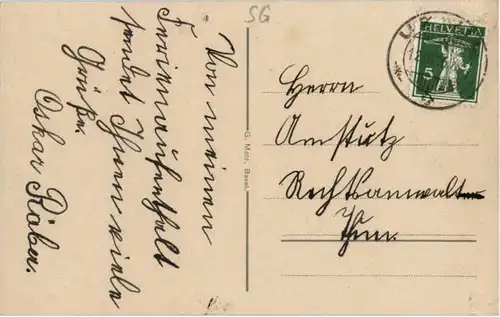 SG
Von meinen
Ferienaufenthalt
sendet Ihnen viele
Grüße.
Oskar Röber.
G. Metz, Basel.
HELVETIA
5
Herrn
Amstutz
Rechtsanwalt
Thun.